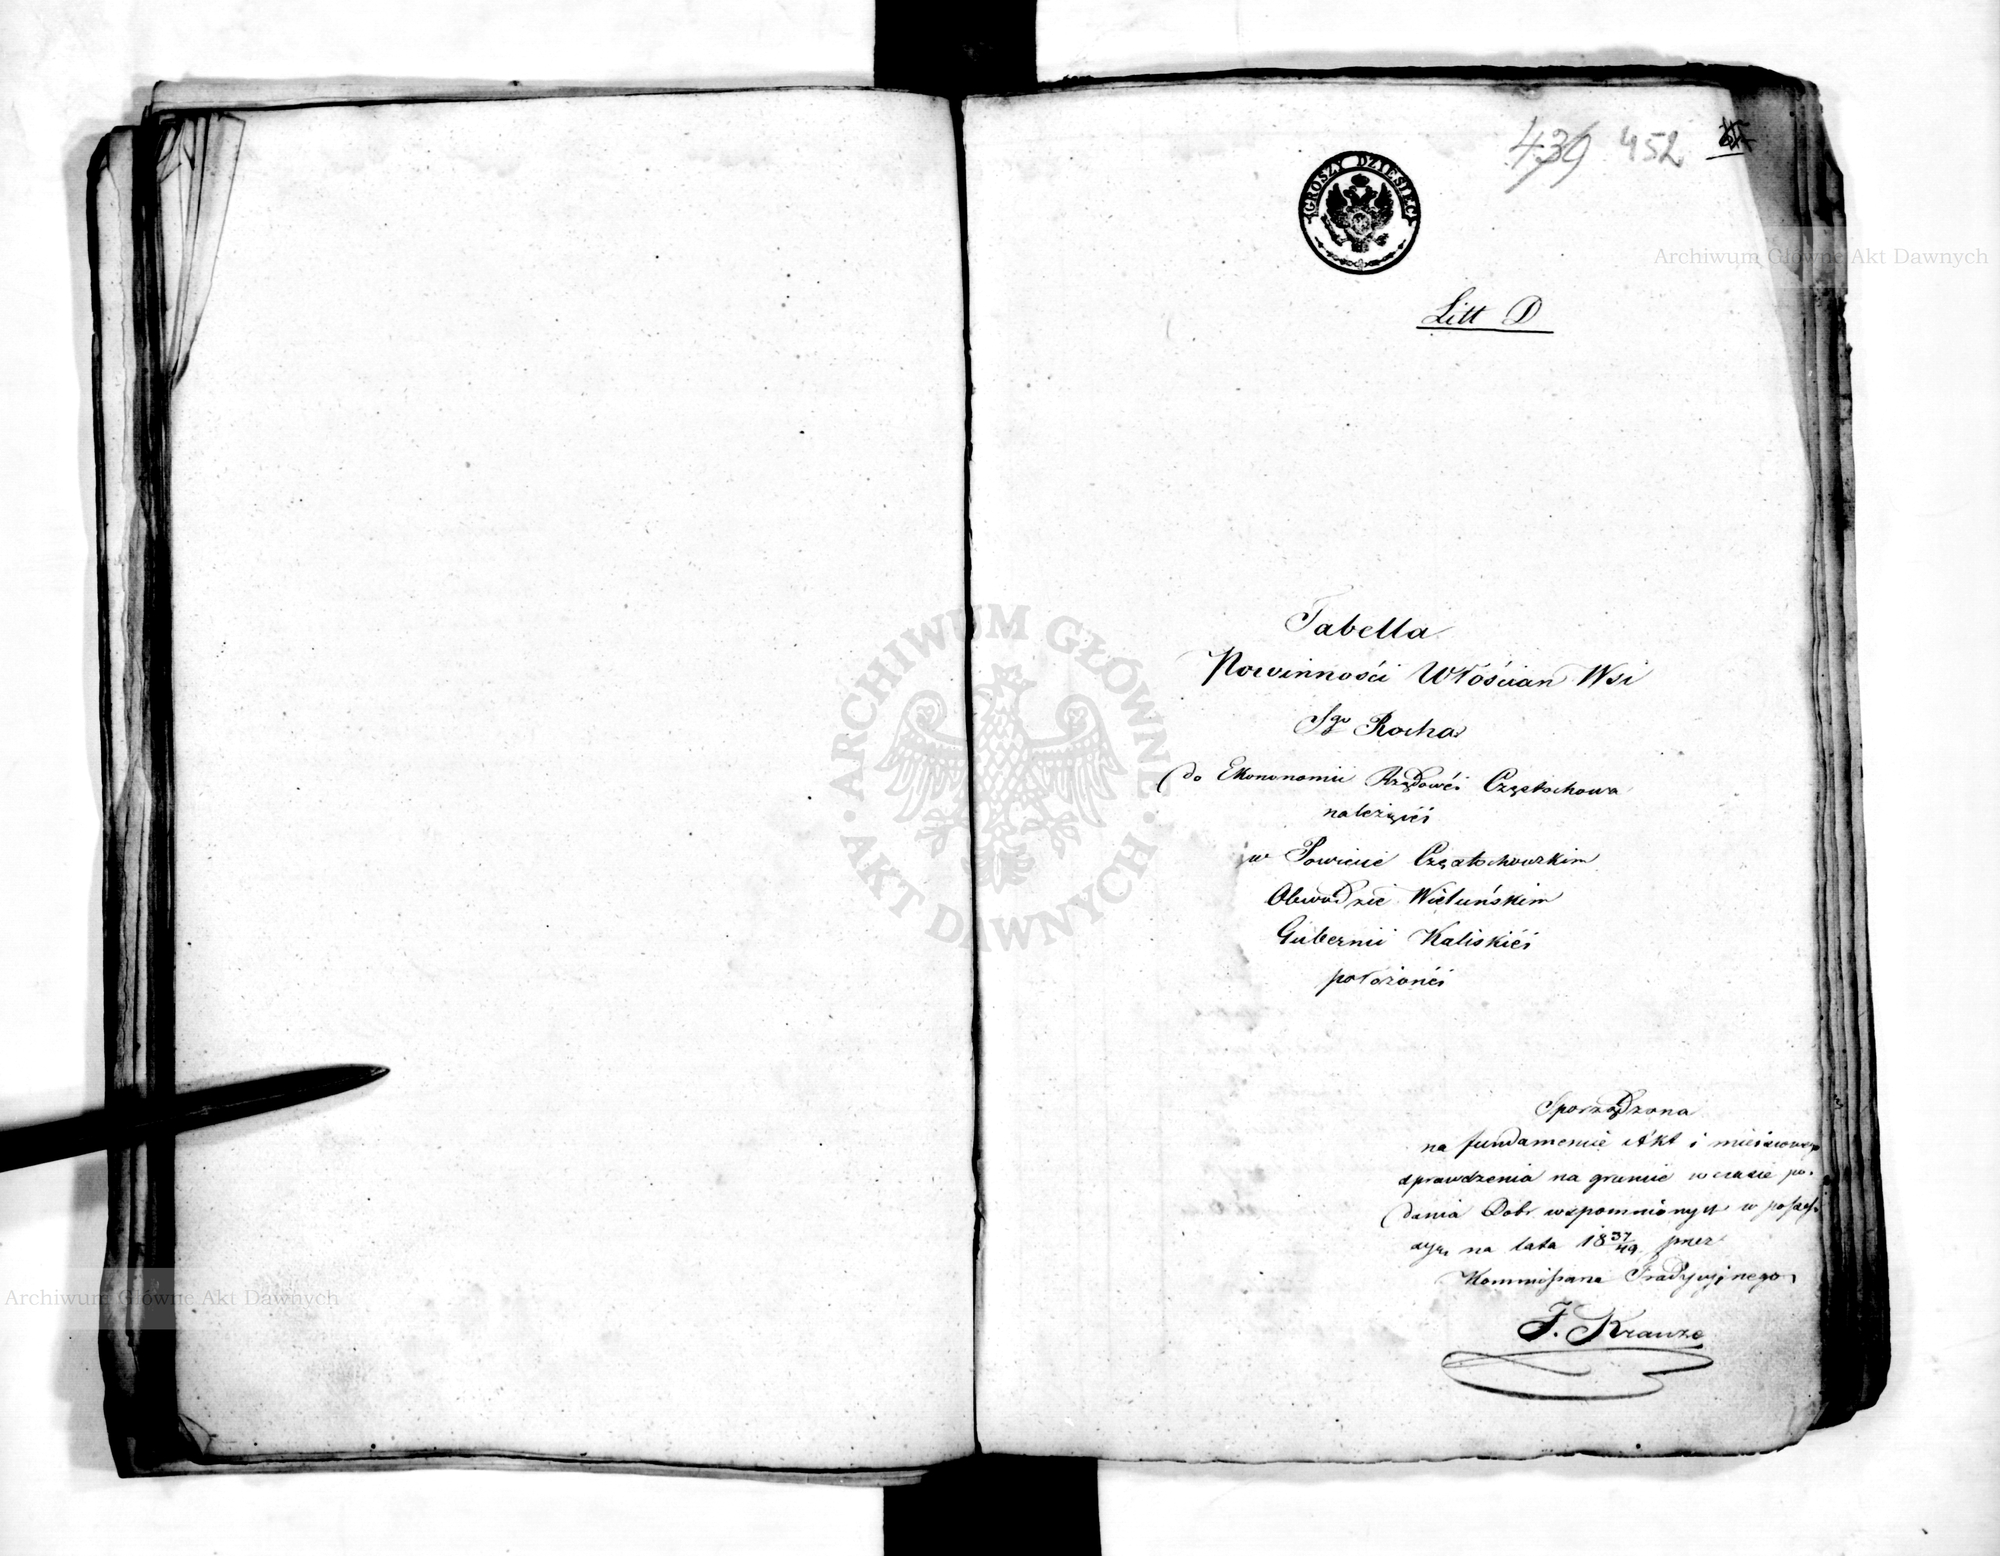 439 452
GROSZY DZIESIĘĆ
Archiwum Główne Akt Dawnych
Litt D
Tabella
Powinności Włościan Wsi
Sgo Rocha
do Ekonomii Rządowéi Częstochowa
należącéi
w Powiecie Częstochowskim
Obwodzie Wieluńskim
Gubernii Kaliskiéi
położonéi
ARCHIWUM GŁÓWNE
AKT DAWNYCH
Sporządzona
na fundamencie Akt i mieiscowego
sprawdzenia na gruncie w czasie po-
dania Dobr wspomnionych w possess-
cyą na lata 18 37/49 przez
Kommissarza Tradycyjnego
F. Krauze
Archiwum Główne Akt Dawnych